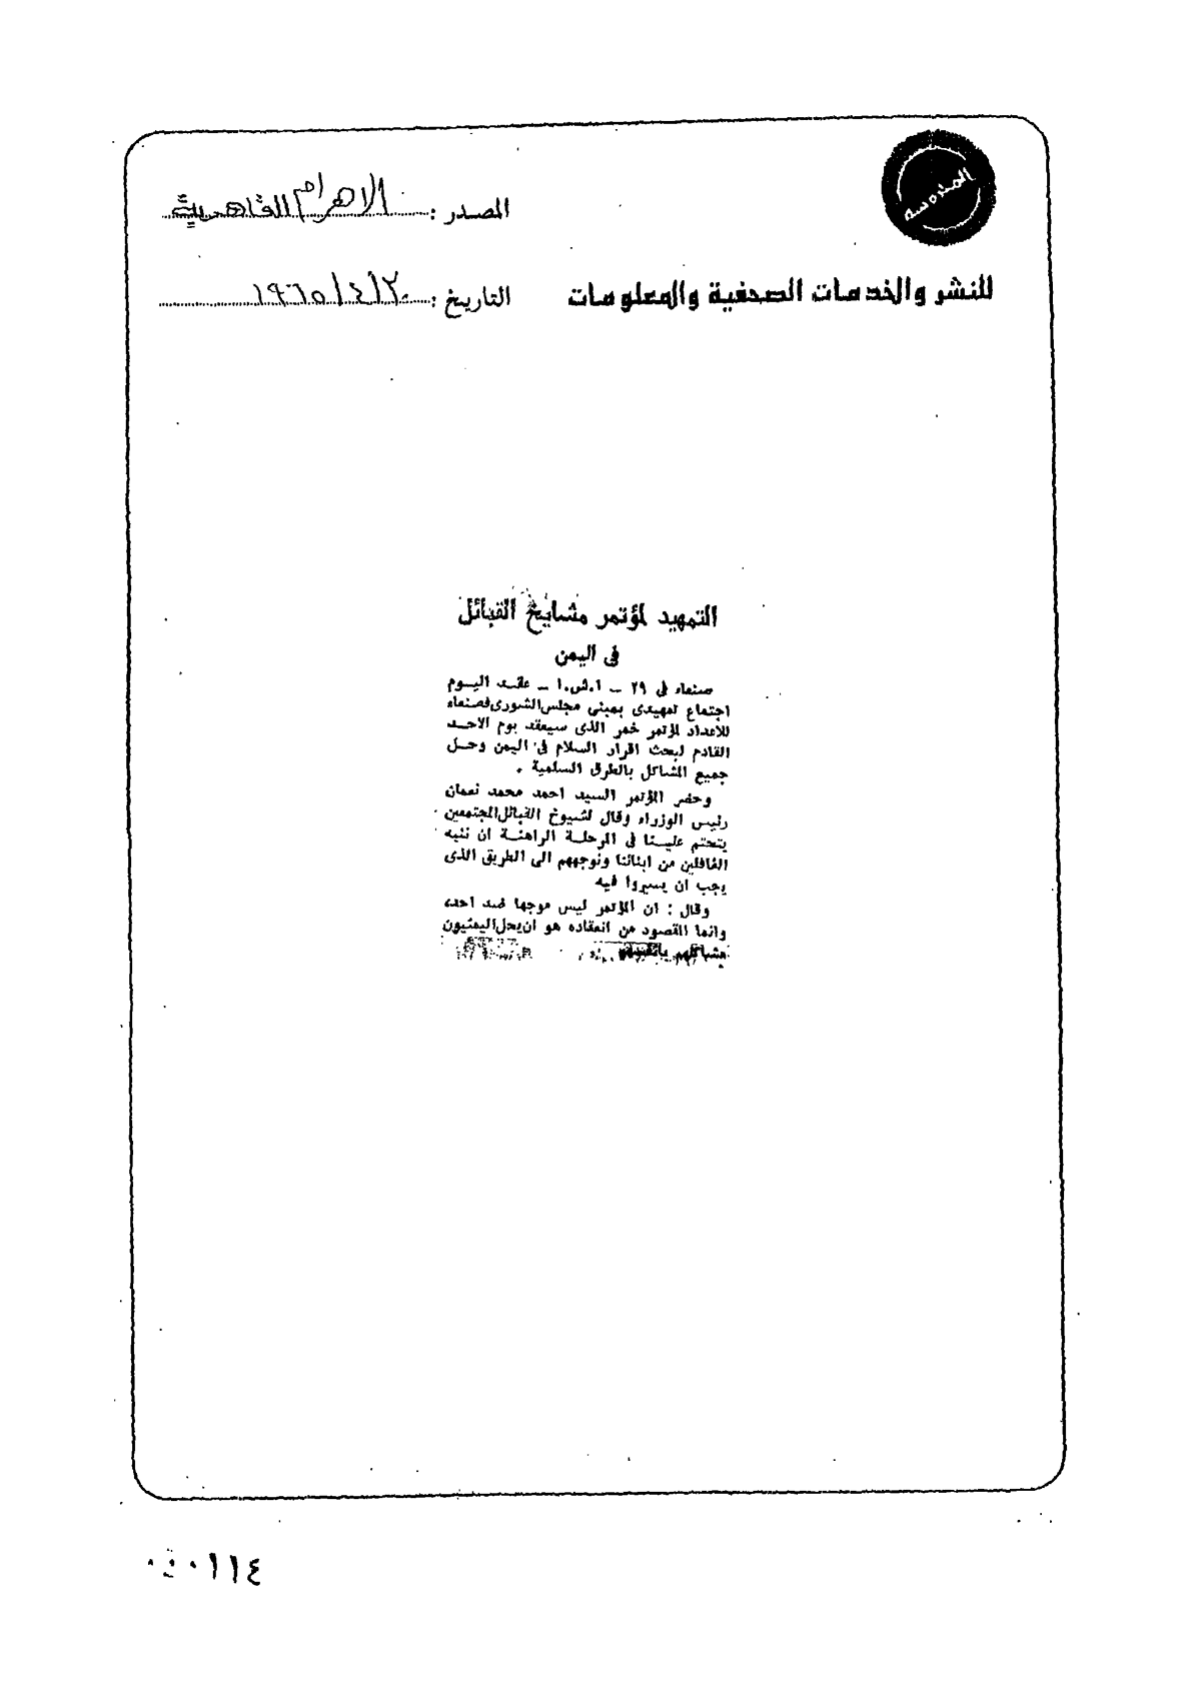 المدوسه
المصدر : الاهرام القاهرية
للنشر والخدمات الصحفية والمعلومات
التاريخ : ٢٠/٤/١٩٦٥
التمهيد لمؤتمر مشايخ القبائل
فى اليمن
صنعاء فى ٢٩ ــ ا.ش.ا ــ عقد اليوم
اجتماع تمهيدى بمبنى مجلس الشورى فصنعاء
للاعداد لمؤتمر خمر الذى سيعقد يوم الاحد
القادم لبحث اقرار السلام فى اليمن وحل
جميع المشاكل بالطرق السلمية .
وحضر المؤتمر السيد احمد محمد نعمان
رئيس الوزراء وقال لشيوخ القبائل المجتمعين
يتحتم علينا فى المرحلة الراهنة ان ننبه
الغافلين من ابنائنا ونوجههم الى الطريق الذى
يجب ان يسيروا فيه
وقال : ان المؤتمر ليس موجها ضد احد،
وانما المقصود من انعقاده هو ان يحل اليمنيون
مشاكلهم
١١٤